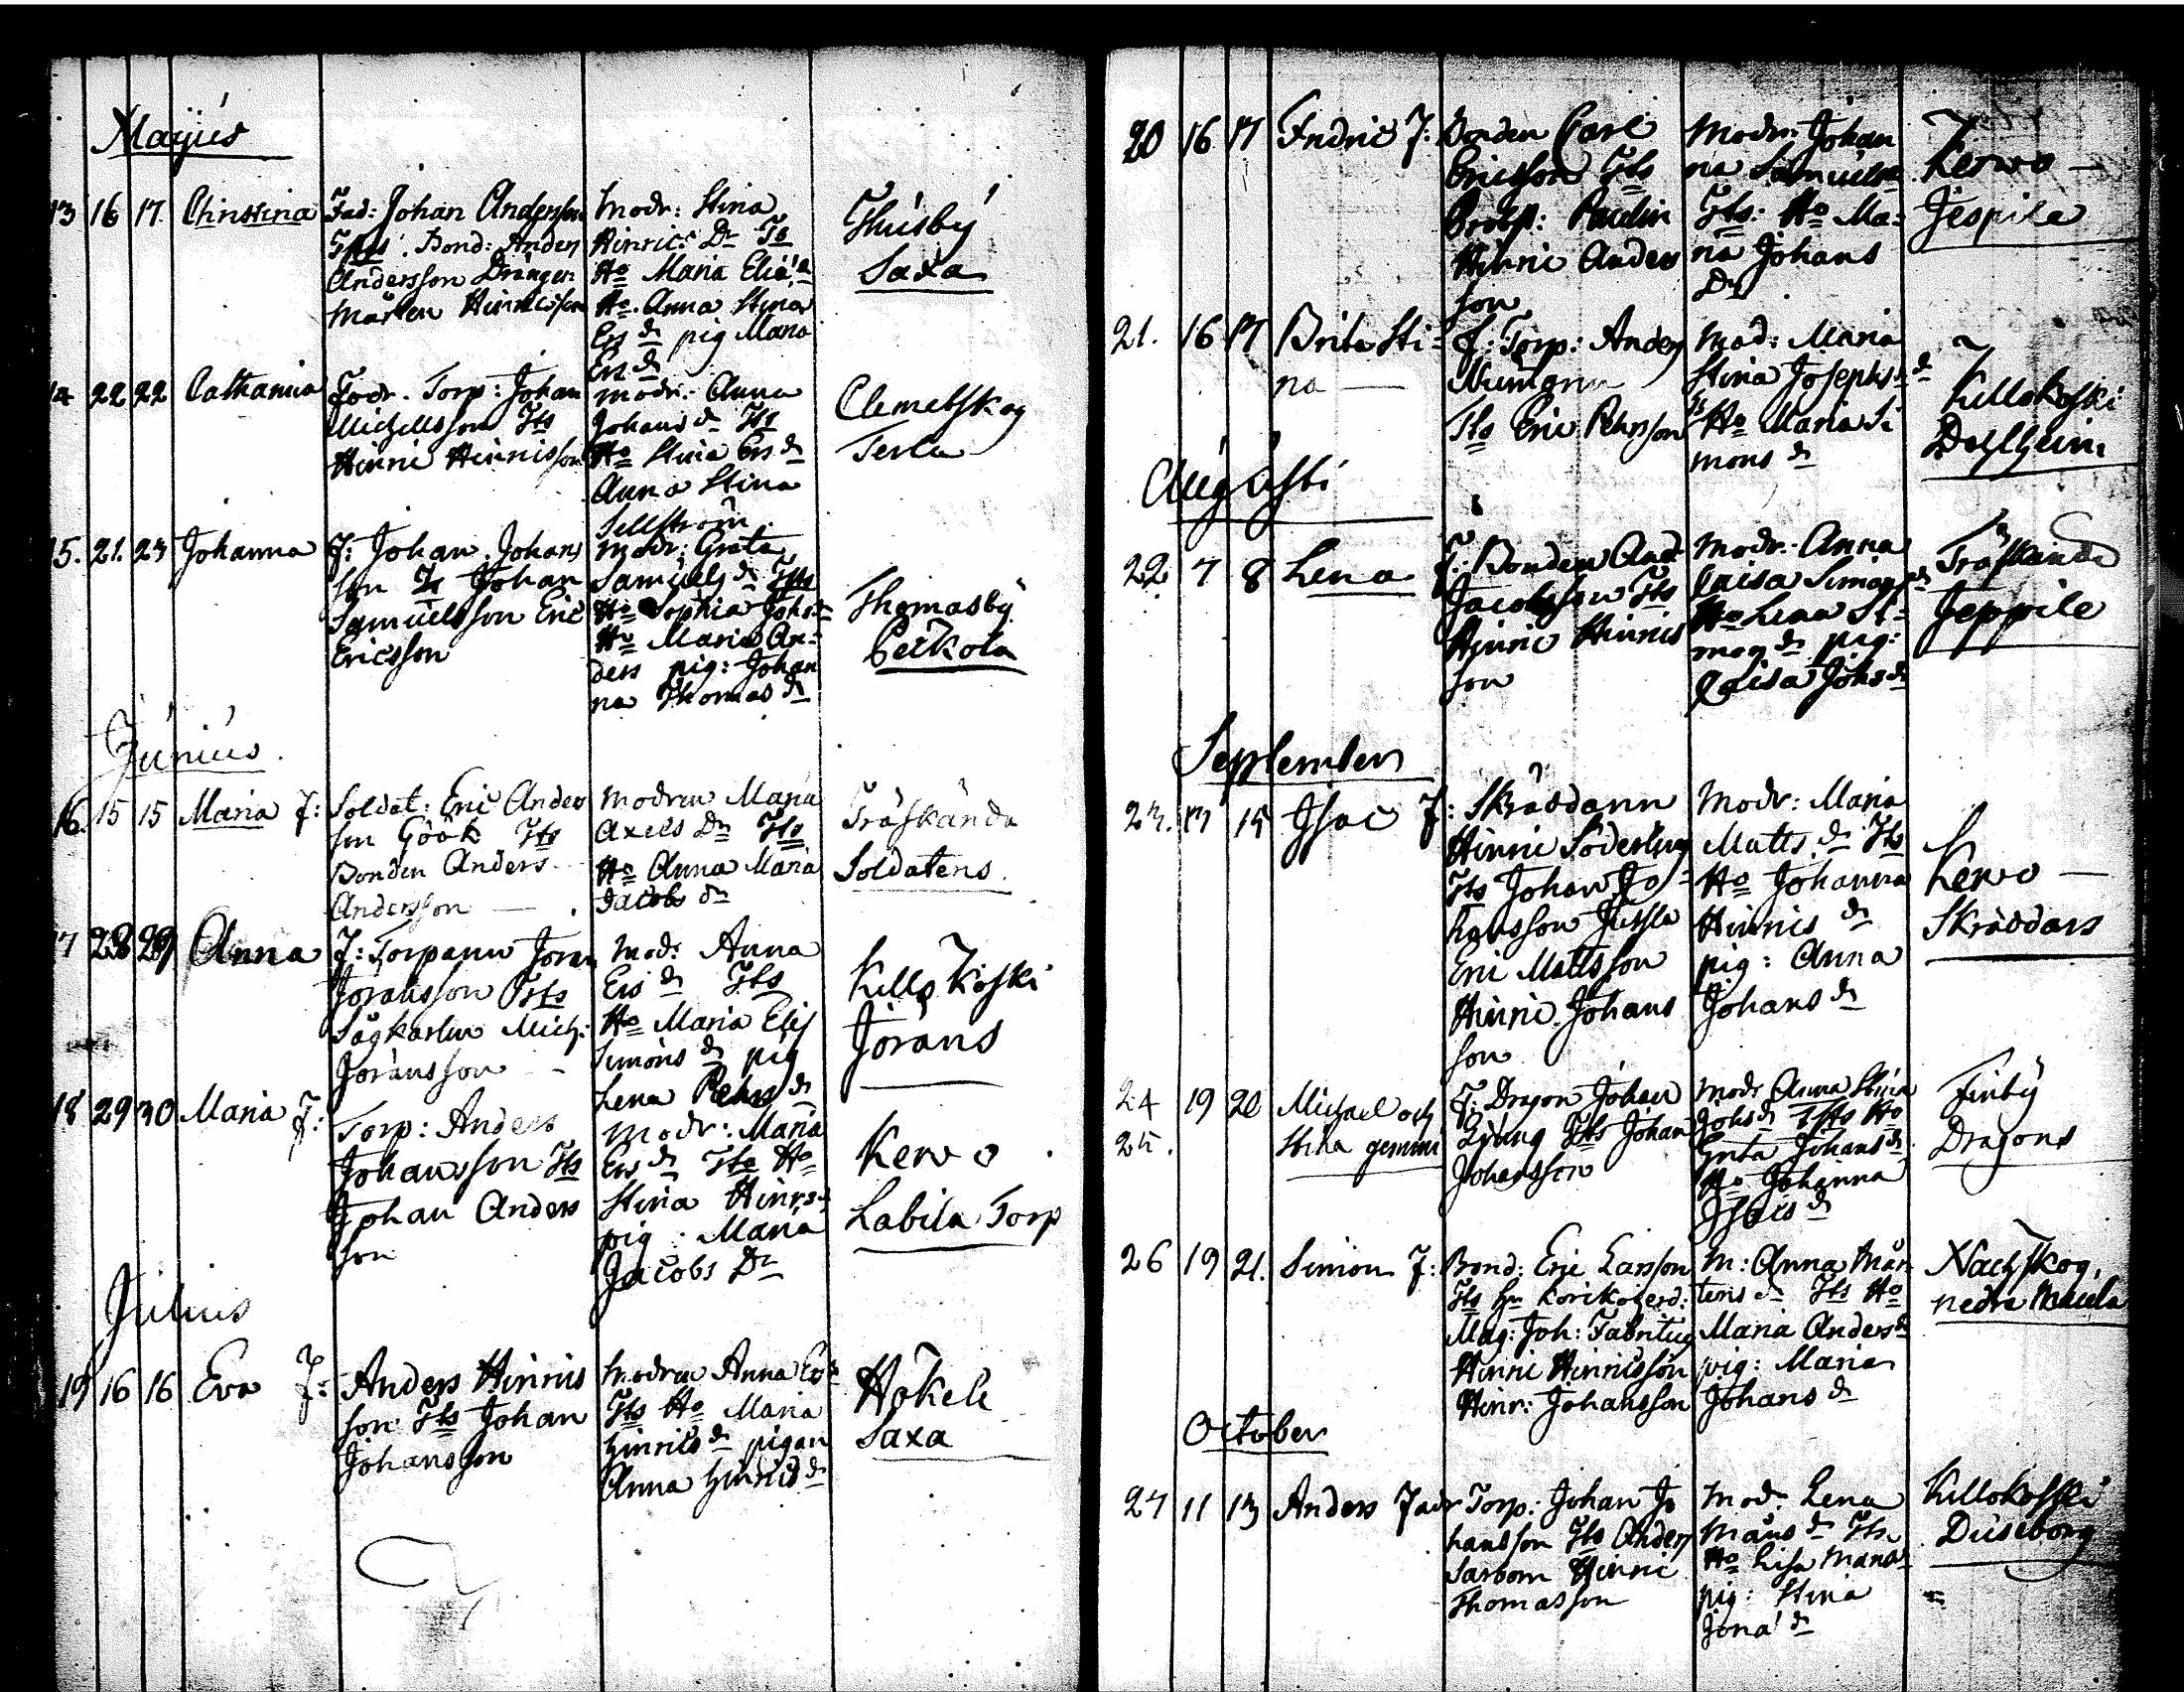 Majus
13 16 17. Christina
Fad: Johan Andersson
Bond: Anders
Andersson Drängen
Mårten Hinricsson
Modr: Stina
Hinrics Dr Ts
Ho Maria
Ho Anna Stina
Ers dr pig Maria
Ers dr
Thusby
Saxa
14 22 22 Catharina
Fadr. Torp: Johan
Michellsson Tts
Hinric Hinricsson
Modr: Anna
Johans dr Tts
Ho Stina Ers dr
Anna Stina
Sellström
Clemetskog
Terla
15. 21. 23 Johanna
F: Johan Johans
son Ts Johan
Samuelsson Eric
Ericsson
Modr: Greta
Samuels dr Tts
Ho Sophia Johs
Ho Maria An-
ders pig: Johan
na Thomas dr
Thomasby
Peckola
Junius.
16. 15 15 Maria F:
Soldat: Eric Anders
son Göök Tts
Bonden Anders
Andersson
Modren Maria
Axels Dr Tts
Ho Anna Maria
Jacobs dr
Träskända
Soldatens.
17 28 29 Anna
F: Torparen Jöran
Jöransson Tts
Sågkarlen Mich:
Jöransson
Mod: Anna
Ers dr Tts
Ho Maria Elis
Simons dr pig
Lena Pehrs dr
Killokoski
Jörans
18 29 30 Maria F:
Torp: Anders
Johansson Tts
Johan Anders
son
Modr: Maria
Ers dr Tts Ho
Stina Hinrs
pig: Maria
Jacobs Dr
Kervo
Labila Torp
Julius
19 16 16 Eva F:
Anders Hinrics
son Tts Johan
Johansson
Modren Anna
Tts Ho Maria
Hinrics dr pigan
Anna Hinrics dr
Hökele
Saxa
20 16 17 Fridric F:
Bonden Carl
Ericsson Tts
Hinric Anders
son
Modr: Johan
na Samuels
Tts: Ho Ma-
ria Johans
Dr
Kervo
Jespila
21. 16 17 Brita Sti-
na
F: Torp: Anders
Tts Eric Pehrsson
Mod: Maria
Stina Josephs dr
Ho Maria Si
mons dr
Killokoski
Augusti
22 7 8 Lena
F: Bonden And
Jacobsson Tts
Hinric Hinrics
son
Modr: Anna
Caisa Simons dr
Ho Lena Si-
mons dr pig:
Caisa Johs dr
Träskända
Jeppila
September
23. 13 15 Isac F:
Skräddaren
Hinric Söderlung
Tts Johan Jo-
hansson
Eric Mattsson
Hinric Johans
son
Modr: Maria
Matts dr Tts
Ho Johanna
Hinrics dr
pig: Anna
Johans dr
Kervo
Skräddars
24 19 20 Michael och
25. Stina gemini
F: Dragon Johan
Liung Tts Johan
Johansson
Modr Anna Stina
Johs dr Tts Ho
Greta Johans dr
Ho Johanna
Isacs dr
Finby
Dragons
26 19 21. Simon F:
Bond: Eric Larsson
Mag: Joh: Fabritius
Hinric Hinricsson
Hinr: Johansson
M: Anna Mår
tens dr Tts Ho
Maria Anders dr
pig: Maria
Johans dr
Nachskog,
nedre
October
27 11 13 Anders Fadr
Torp: Johan Jo
hansson Tts Anders
Sarbom Hinric
Thomasson
Mod: Lena
Måns dr Tts
Ho Lisa
pig: Stina
Jona dr
Killokoski
Duseborg